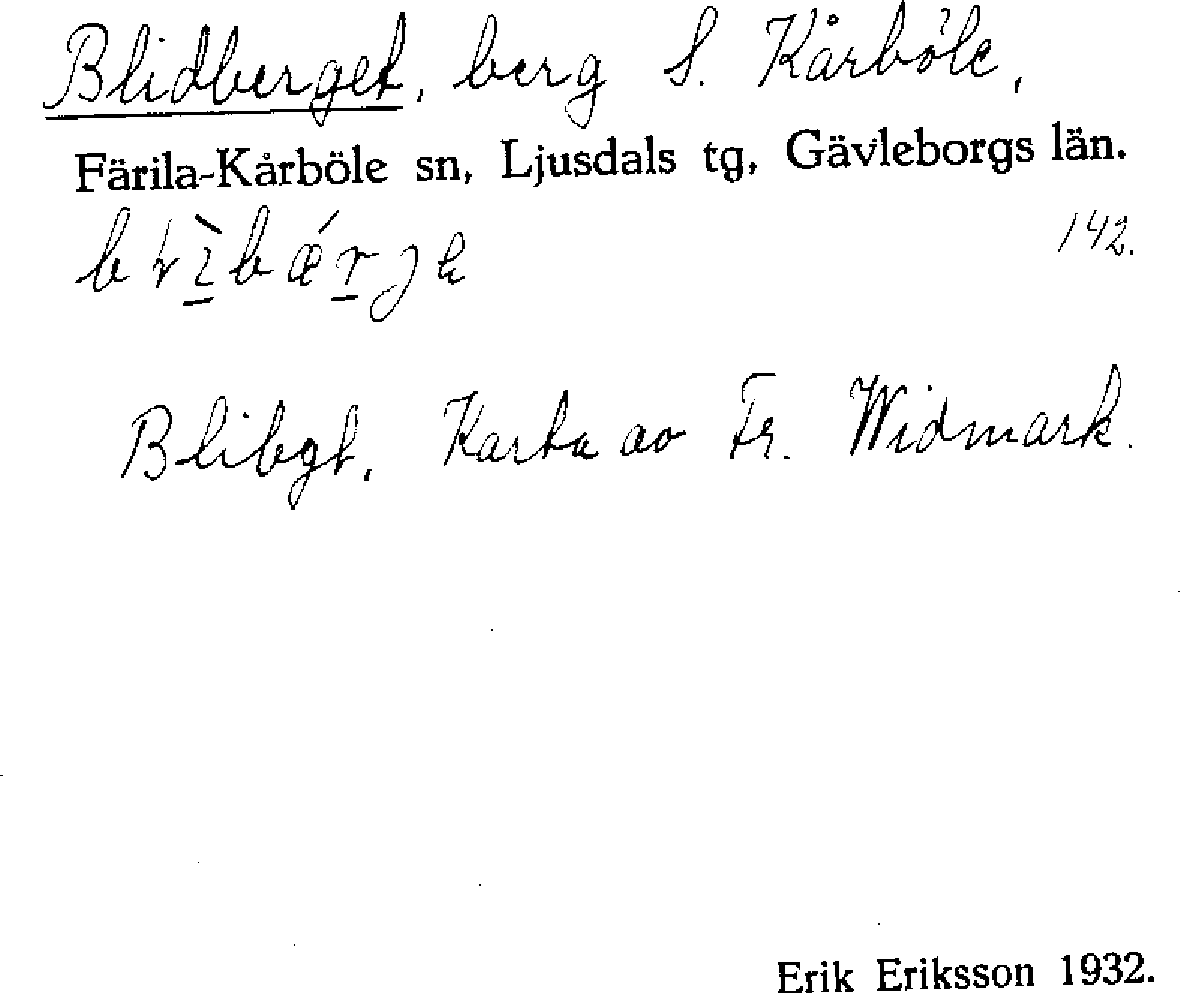 Blidberget, berg S. Kårböle,
Färila-Kårböle sn, Ljusdals tg, Gävleborgs län.
142.
Blibgt. Karta av Fr. Widmark.
Erik Eriksson 1932.